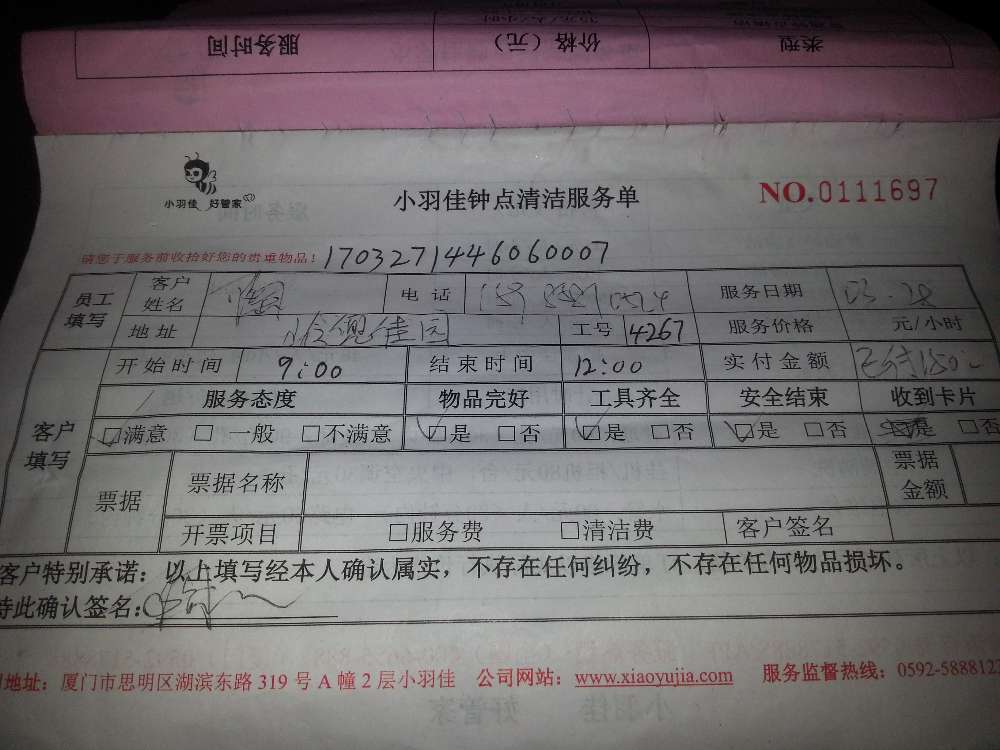 服务时间 价格（元） 类型
小羽佳 好管家
小羽佳钟点清洁服务单
NO.0111697
请您于服务前收拾好您的贵重物品！
1703271446060007
员工填写 客户姓名 电话 服务日期 03.28
地址 佳园 工号 4267 服务价格 元/小时
客户填写 开始时间 9:00 结束时间 12:00 实付金额 已付150元
服务态度 物品完好 工具齐全 安全结束 收到卡片
☑满意 □一般 □不满意 ☑是 □否 ☑是 □否 ☑是 □否 是 □否
票据 票据名称 票据金额
开票项目 □服务费 □清洁费 客户签名
客户特别承诺：以上填写经本人确认属实，不存在任何纠纷，不存在任何物品损坏。
特此确认签名：
地址：厦门市思明区湖滨东路 319 号 A 幢 2 层小羽佳 公司网站：www.xiaoyujia.com 服务监督热线：0592-5888123